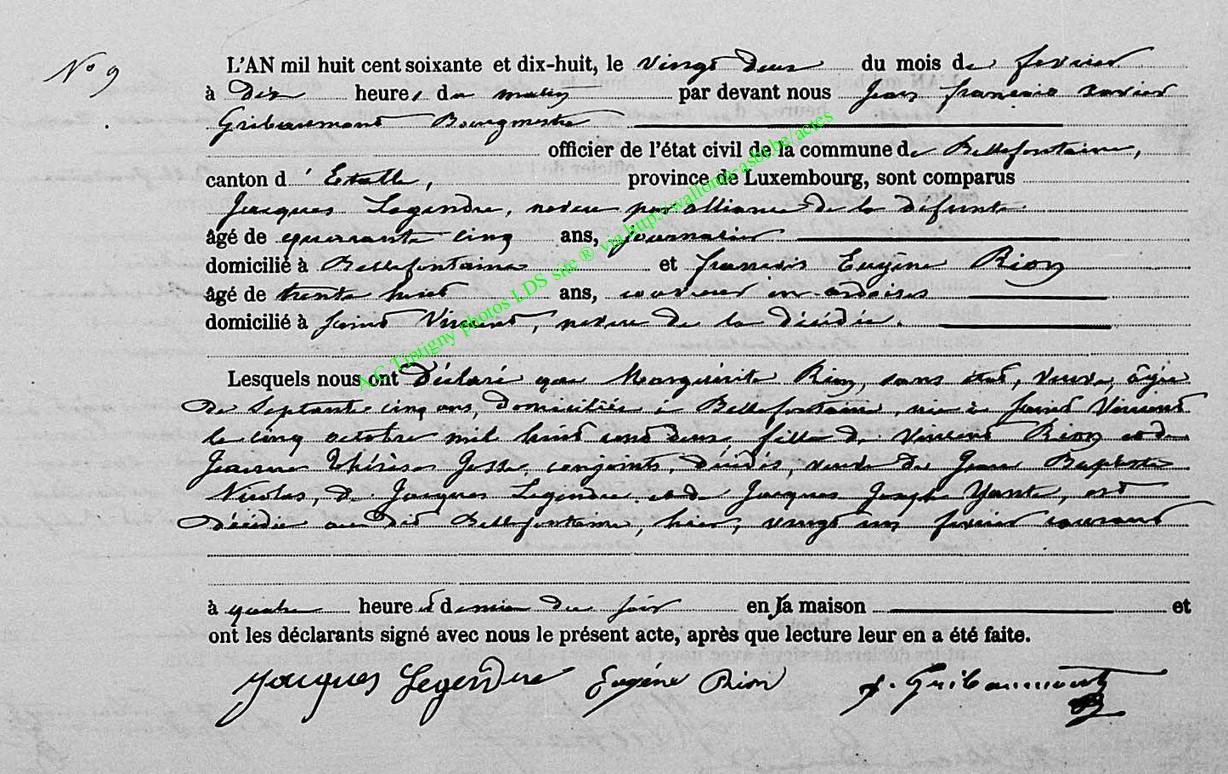 N° 9
L'AN mil huit cent soixante et dix-huit, le vingt deux du mois de fevrier
à dix heures du matin par devant nous Jean françois xavier
Gribaumont Bourgmestre
officier de l'état civil de la commune de Bellefontaine,
canton d'Etalle, province de Luxembourg, sont comparus
Jacques Legendre, neveu par alliance de la défunte
âgé de quarante cinq ans, journalier
domicilié à Bellefontaine et francois Eugène Rion
âgé de trente huit ans, couvreur en ardoises
domicilié à Saint Vincent, neveu de la décédée.
Lesquels nous ont déclaré que Marguerite Rion, sans état, veuve, âgée
de septante cinq ans, domiciliée à Bellefontaine, née à Saint Vincent
le cinq octobre mil huit cent deux, fille de Vincent Rion et de
Jeanne Thérèse Josse, conjoints, décédés, veuve de Jean Baptiste
Nicolas, de Jacques Legendre et de Jacques Joseph Yante, est
décédée au dit Bellefontaine, hier, vingt un fevrier courant
à quatre heures et demie du soir en sa maison et
ont les déclarants signé avec nous le présent acte, après que lecture leur en a été faite.
Jacques Legendre Eugéne Rion f. Gribaumont
A.C. Tintigny photos LDS site ® via http://wallonia.asbl.be/actes